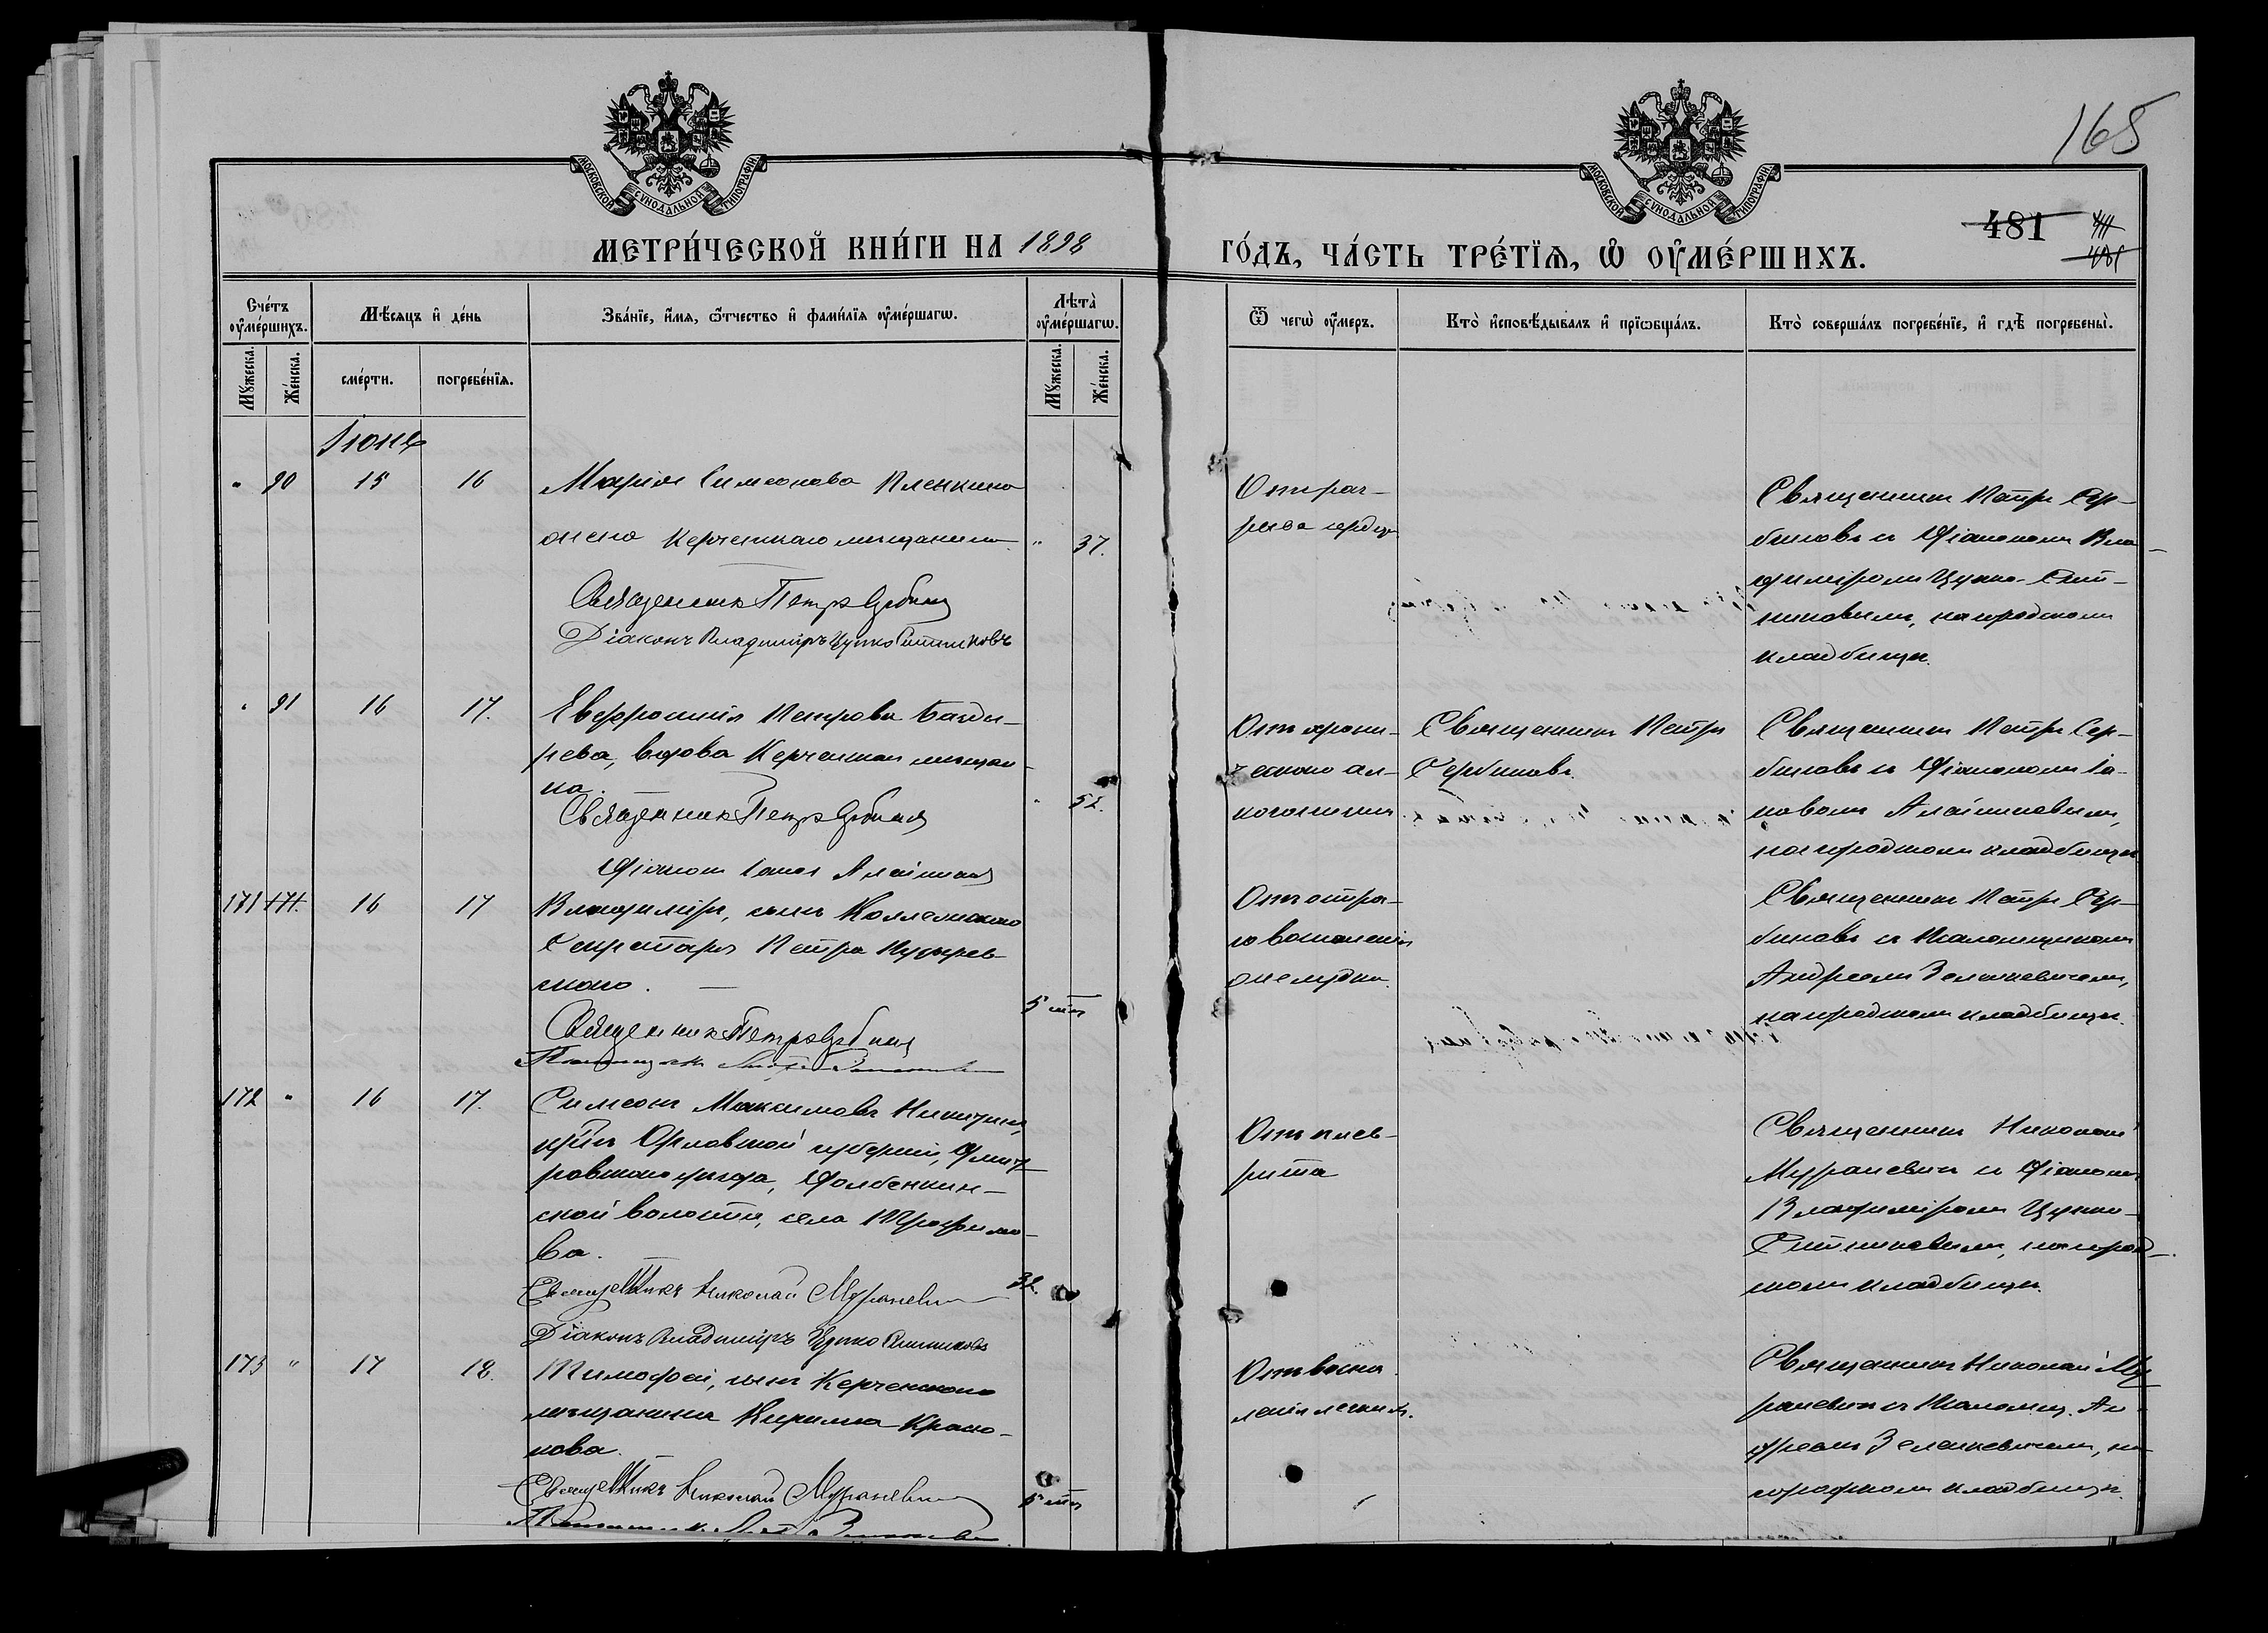 165
МОСКОВСКОЙ СѴНОДАЛЬНОЙ ТИПОГРАФІИ
МОСКОВСКОЙ СѴНОДАЛЬНОЙ ТИПОГРАФІИ
481
МЕТРИ́ЧЕСКОЙ КНИ́ГИ НА 1898
ГО́ДЪ, ЧА́СТЬ ТРЕ́ТЇѦ, Ѡ҆ ОУ҆МЕ́РШИХЪ.
Сче́тъ оу҆ме́ршихъ.
Мꙋ́жеска.
Же́нска.
Мѣ́сяцъ и҆ де́нь
сме́рти.
погребе́нїѧ.
Зва́нїе, и҆́мѧ, ѻ҆́тчество и҆ фами́лїѧ оу҆ме́ршагѡ.
Лѣ́та оу҆ме́ршагѡ.
Мꙋ́жеска.
Же́нска.
Ѿ чегѡ̀ оу҆́меръ.
Кто̀ и҆сповѣ́дывалъ и҆ прїѡбща́лъ.
Кто̀ соверша́лъ погребе́нїе, и҆ гдѣ̀ погребены̀.
Іюнь
" 90 15 16
Марія Симеонова Пленкина
жена Керченскаго мѣщанина. " 37.
Священникъ Петръ Сербиновъ
Діаконъ Владиміръ Цупко Ситниковъ
Отъ раз-
рыва сердца
Священникъ Петръ Сер-
биновъ и Діакономъ Вла-
диміромъ Цупко-Сит-
никовымъ, на городскомъ
кладбищѣ.
" 91 16 17.
Евфросинія Петрова
рева, вдова Керченская мѣщан-
ка. " 52.
Священникъ Петръ Сербиновъ
Діаконъ
Отъ хрони-
ческаго ал-
коголизма
Священникъ Петръ
Сербиновъ.
Священникъ Петръ Сер-
биновъ и Діакономъ Іа-
ковомъ
на городскомъ кладбищѣ
171 171. 16 17
Владиміръ, сынъ Коллежскаго
Секретаря Петра
скаго. 5 мѣс
Священникъ Петръ Сербиновъ
Отъ остра-
го воспаленія
желудка.
Священникъ Петръ Сер-
биновъ и Псаломщикомъ
Андреемъ Зеленкевичемъ,
на городскомъ кладбищѣ.
172 " 16 17.
Симеонъ Максимовъ Никитинъ,
кр-нъ Орловской губерніи, Дмит-
ровскаго уѣзда, Долбенкин-
ской волости, села Трофимо-
ва. 32.
Священникъ Николай Мураневичъ
Діаконъ Владиміръ Цупко Ситниковъ
Отъ плев-
рита
Священникъ Николай
Мураневичъ и Діаконъ
Владиміромъ Цупко-
Ситниковымъ, на город-
скомъ кладбищѣ.
173 " 17 18.
Тимофей, сынъ Керченскаго
мѣщанина Кирилла Красно-
кова. 5 мѣс
Священникъ Николай Мураневичъ
Отъ воспа-
ленія легкихъ.
Священникъ Николай Му-
раневичъ и Псаломщ. Ан-
дреемъ Зеленкевичемъ, на
городскомъ кладбищѣ.